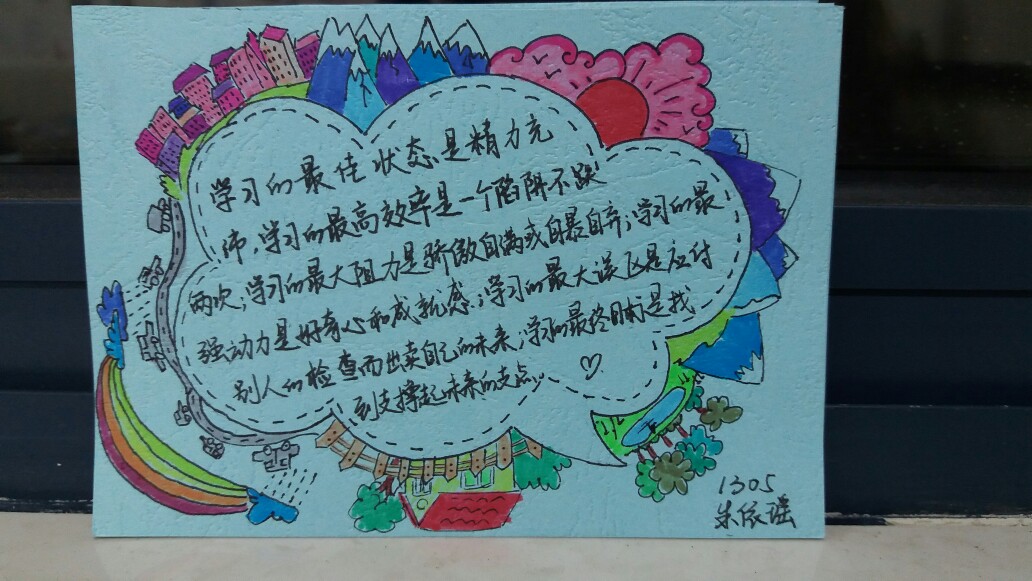 学习的最佳状态是精力充
沛；学习的最高效率是一个陷阱不跌
两次；学习的最大阻力是骄傲自满或自暴自弃；学习的最
强动力是好奇心和成就感；学习的最大误区是应付
别人的检查而出卖自己的未来；学习的最终目标是找
到支撑起未来的支点。
1305
朱依瑶